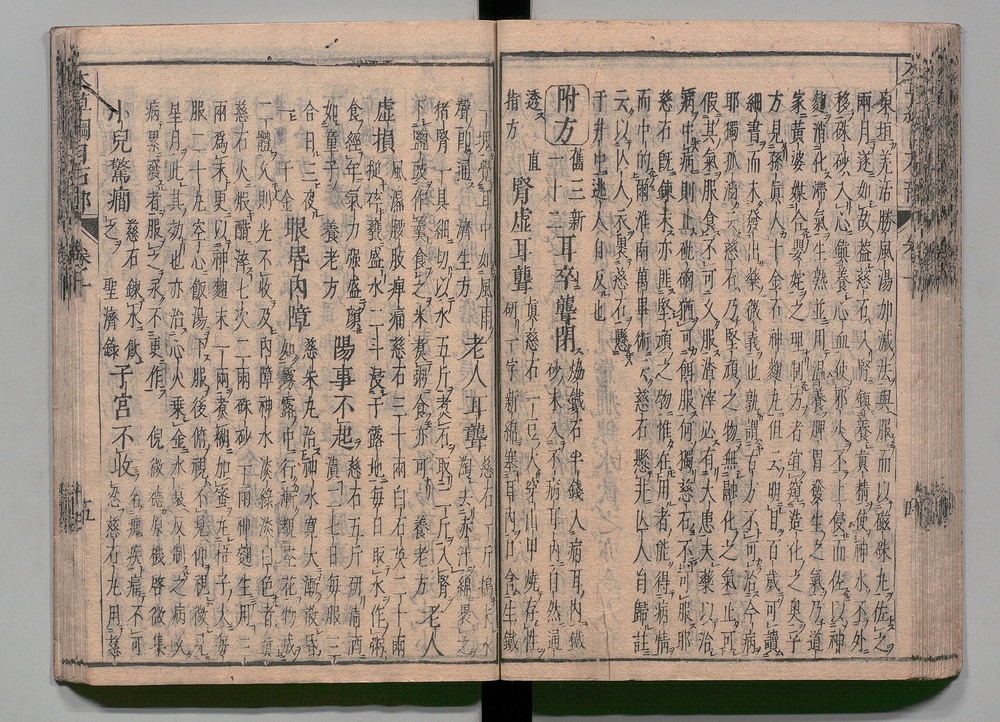 東垣羌活勝風湯加減法與服而以磁硃丸佐之
兩月遂如故益慈石入腎鎮養真精使神水不外
移硃砂入心鎮養心血使邪火不上侵而佐以神
麴消化滯氣生熟並用温養脾胃發生之氣乃道
家黃婆媒合嬰姹之理制方者宜窺造化之奥乎
方見孫真人千金方神麴丸但云明目百歳可讀
細書而未發出藥微義也孰謂古方不可治今病
耶獨孤滔云慈石乃堅頑之物無融化之氣止可
假其氣服食不可久服渣滓必有大患夫藥以治
病中病則止砒硇猶可餌服何獨慈石不可服耶
慈石既錬末亦匪堅頑之物惟在用者能得病情
而中的爾淮南萬畢術云慈石懸井亡人自歸註
云以亡人衣裹慈石懸
于井中逃人自反也
附方
舊三新
一十二
耳卒聾閉
熁鐵石半錢入病耳內鐵
砂末入不病耳內自然通
透
直
指方
腎虛耳聾
真慈石一豆大穿山甲燒存性
研一字新綿塞耳內口含生鐵
一塊覺耳中如風雨
聲即通
濟生方
老人耳聾
慈石一斤搗末水
淘去赤汁綿裹之
猪腎一具細切以水五斤煮石取二斤入腎
下鹽豉作羹食之米煮粥食亦可
養老方
老人
虛損
風濕腰肢痺痛慈石三十兩白石英二十兩
搥碎甕盛水二斗浸于露地每日取水作粥
食經年氣力強盛顏
如童子
養老方
陽事不起
慈石五斤研清酒
漬二七日毎服三
合日三夜
一
千金
眼昏內障
慈朱丸治神水寬大漸散昏
如霧露中行漸覩空花物成
二體久則光不收及內障神水淡綠淡白色者真
慈石火煅醋淬七次二兩硃砂一兩神麴生用三
兩爲末更以神麴末一兩煮糊加蜜丸梧子大每
服二十丸空心飯湯下服後俯視不見仰視微見
星月此其效也亦治心火乗金水衰反制之病久
病累發者服之永不更作
倪微德原機啓微集
小兒驚癎
慈石錬水飲
之
聖濟錄
子宮不收
名㿗疾痛不可
忍慈石丸用慈